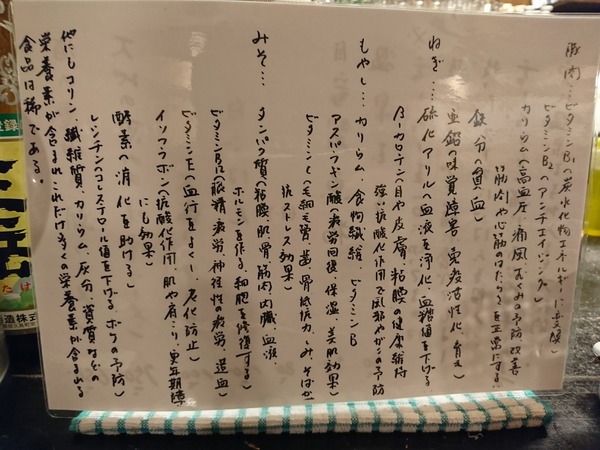 豚肉…ビタミンB₁(炭水化物エネルギーに変換)
ビタミンB₂(アンチエイジング)
カリウム(高血圧、痛風、むくみの予防、改善
筋肉や心筋のはたらきを正常にする)
鉄分(貧血)
亜鉛(味覚障害、免疫活性化、育毛)
ねぎ…硫化アリル(血液を浄化、血糖値を下げる
β-カロテン(目や皮膚、粘膜の健康維持
強い抗酸化作用で風邪やガンの予防
もやし…カリウム、食物繊維、ビタミンB
アスパラギン酸(疲労回復、保温、美肌効果)
ビタミンC(毛細、歯、骨、抵抗力、しみそばかす
抗ストレス効果)
みそ…タンパク質(粘膜、肌、骨、筋肉、内臓、血液、
ホルモンを作る、細胞を修復する)
ビタミンB₁₂(眼精疲労、神経性の疲労、造血)
ビタミンE(血行をよくし、老化防止)
イソフラボン(抗酸化作用、肌や肩こり、更年期障
にも効果)
酵素(消化を助ける)
レシチン(コレステロール値を下げる、ボケの予防)
他にもコリン、繊維質、カリウム、灰分、資質などの
栄養素が含まれ、これだけ多くの栄養素が含まれる
食品は稀である。
登録
たけ
酒造株式